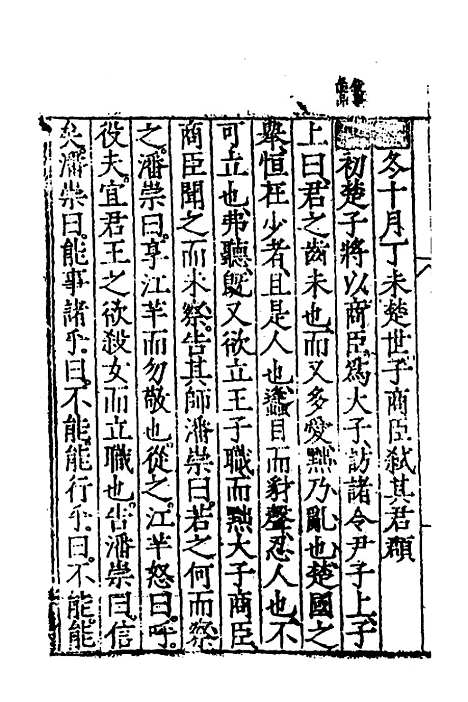 冬十月丁未楚世子商臣弒其君頵
初楚子將以商臣爲大子訪諸令尹子上子
上曰君之齒未也而又多愛黜乃亂也楚國之
舉恒在少者且是人也蠭目而豺聲忍人也不
可立也弗聽既又欲立王子職而黜大子商臣
商臣聞之而未察告其師潘崇曰若之何而察
之潘崇曰享江芊而勿敬也從之江芊怒曰呼
役夫宜君王之欲殺女而立職也告潘崇曰信
矣潘崇曰能事諸乎曰不能能行乎曰不能能